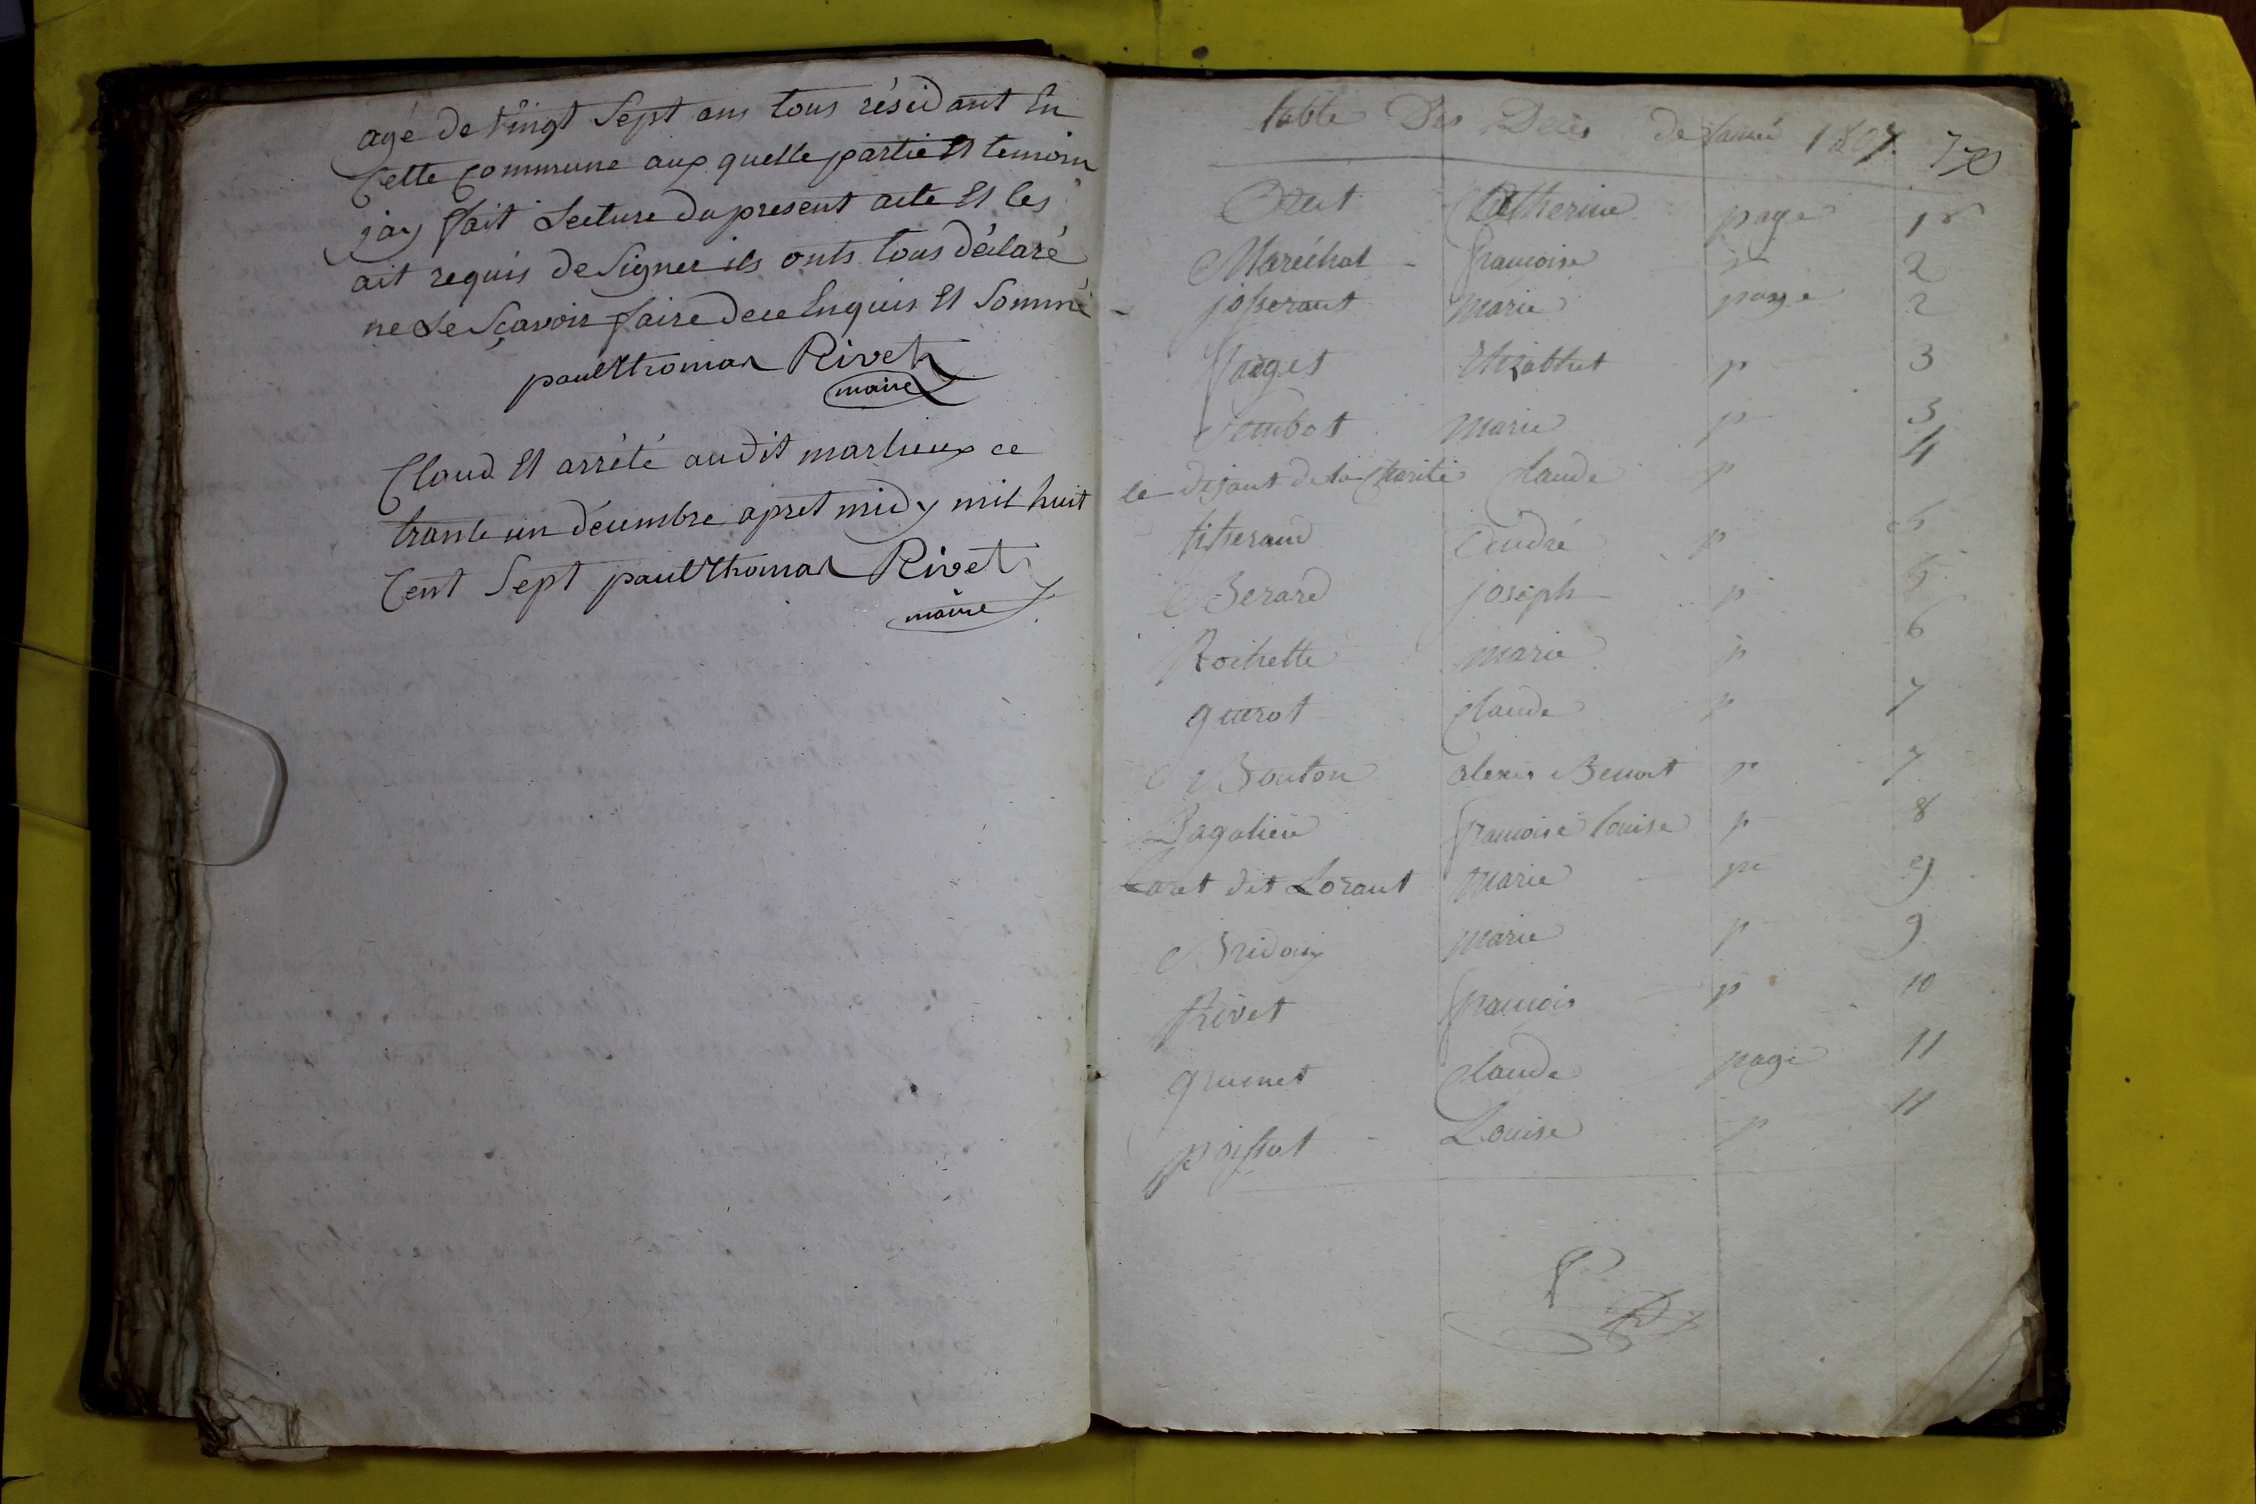 agé de vingt Sept ans tous résidant En
Cette Commune aux quelle partie Et temoin
jay fait Lecture du present acte Et les
ait requis de Signer ils onts tous déclaré
ne Le Sçavoir faire de ce Enquis Et Sommé
paul thomas Rivet
maire
Cloud Et arrété audit marlieux ce
trante un décembre apret midy mil huit
Cent Sept paul thomas Rivet
maire
table Des Décès de Lanné 1807.
Catherine page 1
Maréchal françoise 2
josserant Marie page 2
farget Elizabhet p 3
Marie p 3
le disant de la Charité Claude p 4
André p 5
Berard joseph p 5
Rochette marie p 6
guerot Claude p 7
Bouton alexis Benoit p 7
Bagatieu françoise Louise p 8
Loret dit Lorant Marie p 9
Bridon Marie p 9
Rivet françois p 10
grumet Claude page 11
poissat Louise p 11